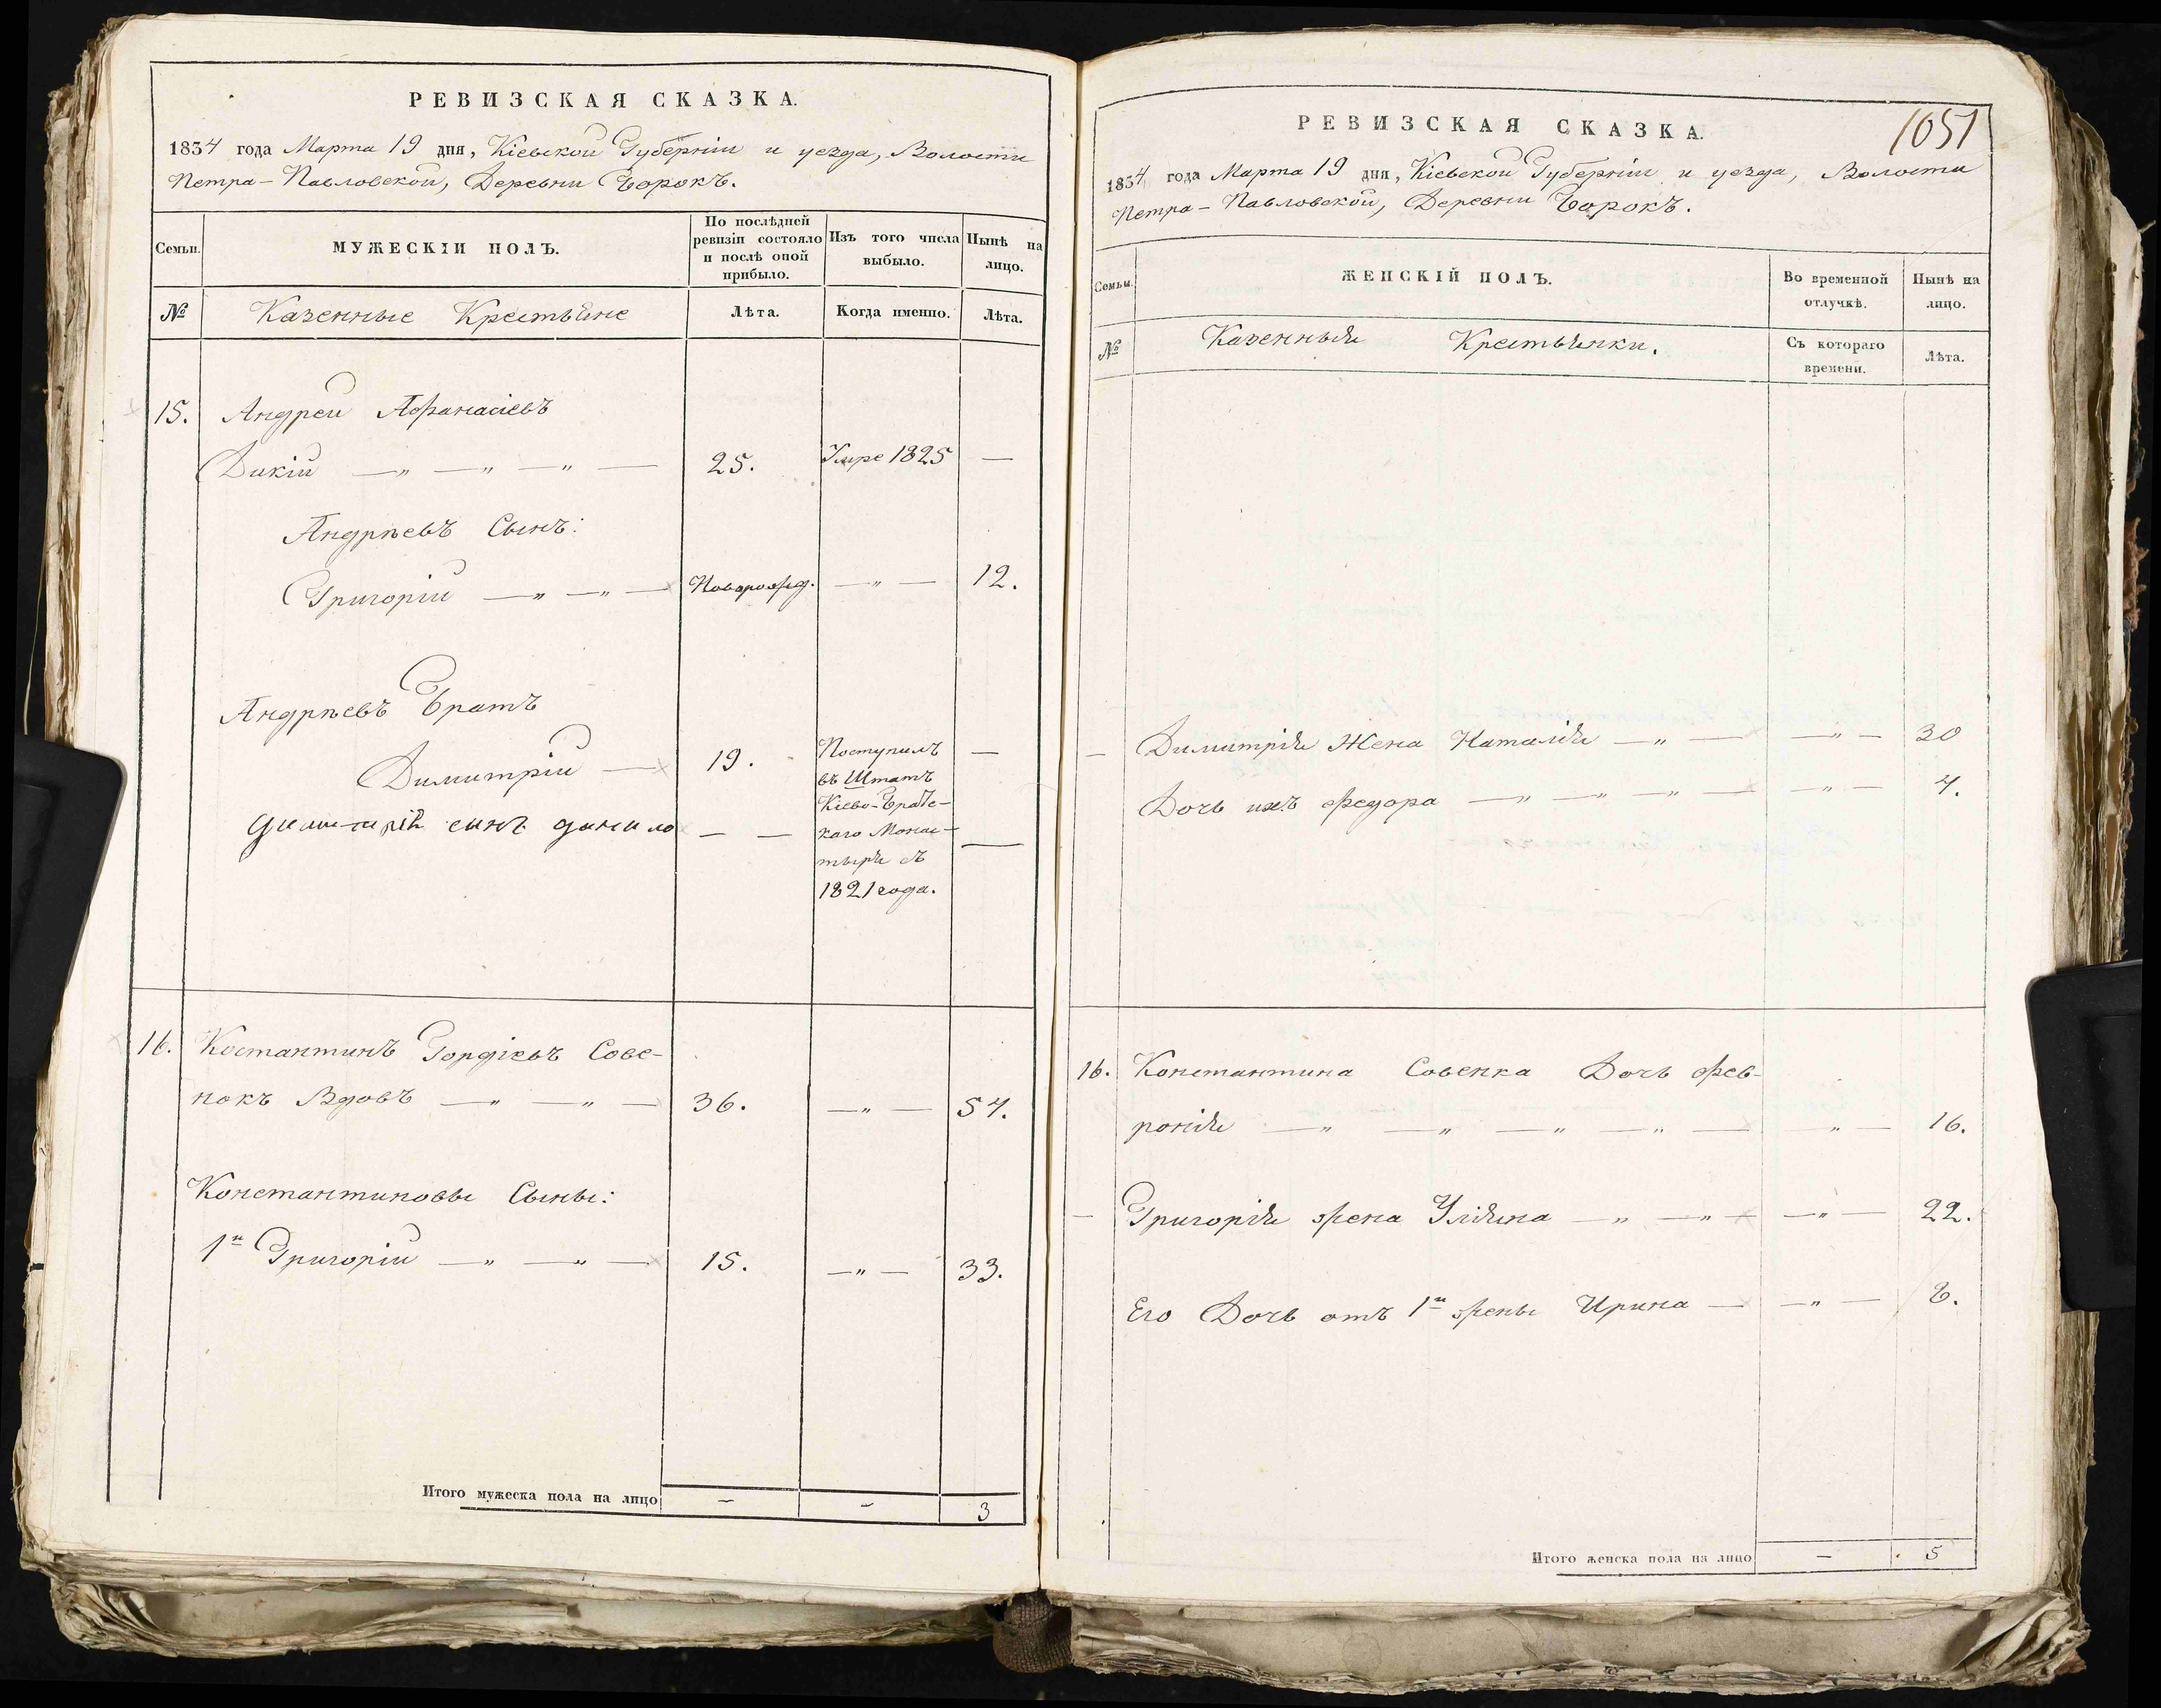 РЕВИЗСКАЯ СКАЗКА.
1834 года Марта 19 дня, Кіевской Губерніи и уезда, Волости
Петра-Павловской, Деревни Борокъ.
Семьи.
МУЖЕСКІЙ ПОЛЪ.
По послѣдней
ревизіи состояло
и послѣ оной
прибыло.
Изъ того числа
выбыло.
Нынѣ на
лицо.
№
Казенные Крестьяне
Лѣта.
Когда именно.
Лѣта.
15. Андрей Афанасіевъ
Дикій — „ — „ — „ — 25. Умре 1825 —
Андрѣевъ Сынъ:
Григорій — „ — „ — Новорожд. — „ — 12.
Андрѣевъ Братъ
Димитрій — 19. Поступилъ —
въ Штатъ
Кіево-Братс-
димитрій сынъ данило — — каго Монас- —
тыря съ
1821 года.
16. Костантинъ Гордіевъ Сове-
нокъ Вдовъ — „ — „ — 36. — „ — 54.
Константиновы Сыны:
1й Григорій — „ — „ — 15. — „ — 33.
Итого мужеска пола на лицо — — 3
1051
РЕВИЗСКАЯ СКАЗКА.
1834 года Марта 19 дня, Кіевской Губерніи и уезда, Волости
Петра-Павловской, Деревни Борокъ.
Семьи.
ЖЕНСКІЙ ПОЛЪ.
Во временной
отлучкѣ.
Нынѣ на
лицо.
№
Казенныя Крестьянки.
Съ котораго
времени.
Лѣта.
— Димитрія Жена Наталія — „ — — „ — 30
Дочь ихъ Федора — „ — „ — „ — — „ — 4.
16. Константина Совенка Дочь Фев-
ронія — „ — „ — „ — „ — — „ — 16.
— Григорія жена Уліяна — „ — „ — — „ — 22.
Его Дочь отъ 1й жены Ирина — — „ — 8.
Итого женска пола на лицо — 5